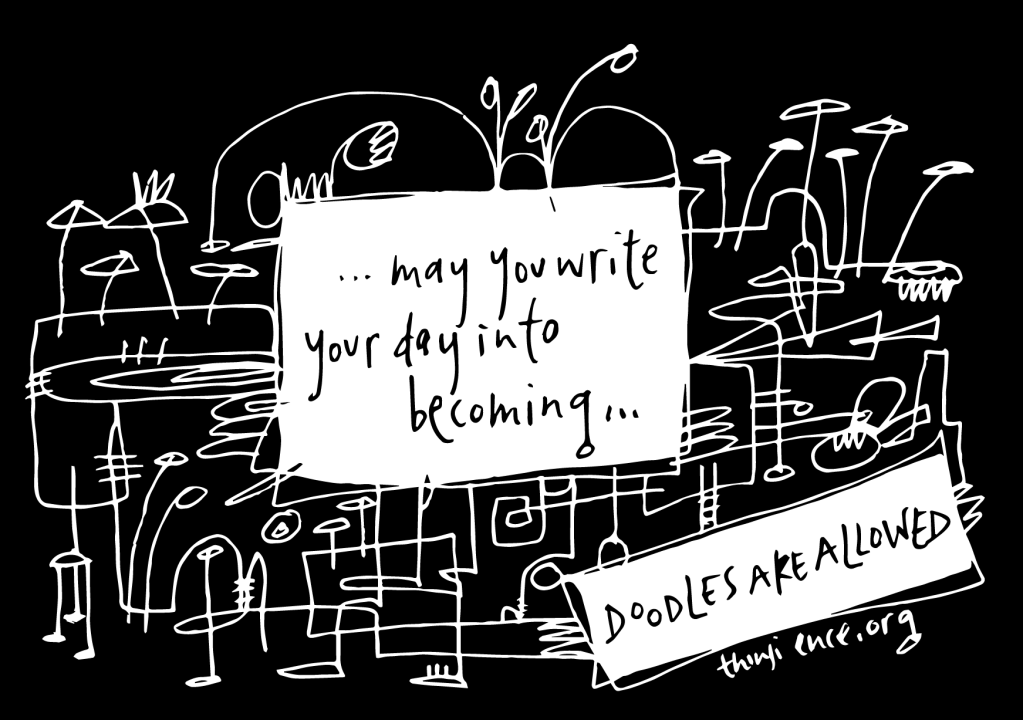 ... may you write
your day into
becoming ...
DOODLES ARE ALLOWED